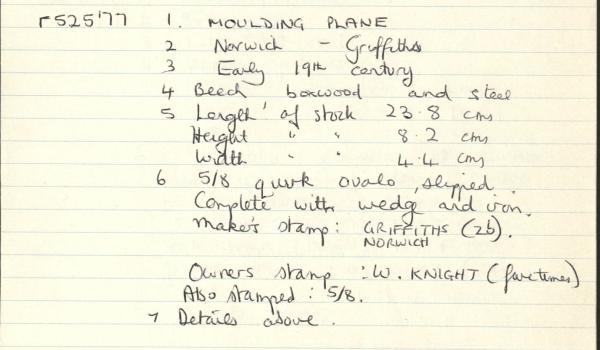 r525'77 1. MOULDING PLANE
2 Norwich - Griffiths
3 Early 19th century
4 Beech boxwood and steel
5 Length of stock 23.8 cms
Height " " 8.2 cms
Width " " 4.4 cms
6 5/8 quirk ovolo, slipped.
Complete with wedge and iron.
Maker's stamp: GRIFFITHS (2b).
NORWICH
Owners stamp: W. KNIGHT (five times)
Also stamped: 5/8.
7 Details above.